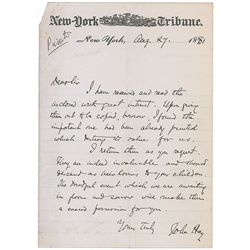 New-York Tribune.
Private
New York, Aug. 27. 1881
Dear Sir
I have received and read the
inclosed with great interest. Upon giving
them out to be copied, I found the
important one has been already printed
which destroys its value for us.
I return them as you request.
They are indeed invaluable and should
descend as heirlooms to your children.
The dreadful event which we are
in and sorrow will make them
a sacred possession for you
Yours truly
John Hay